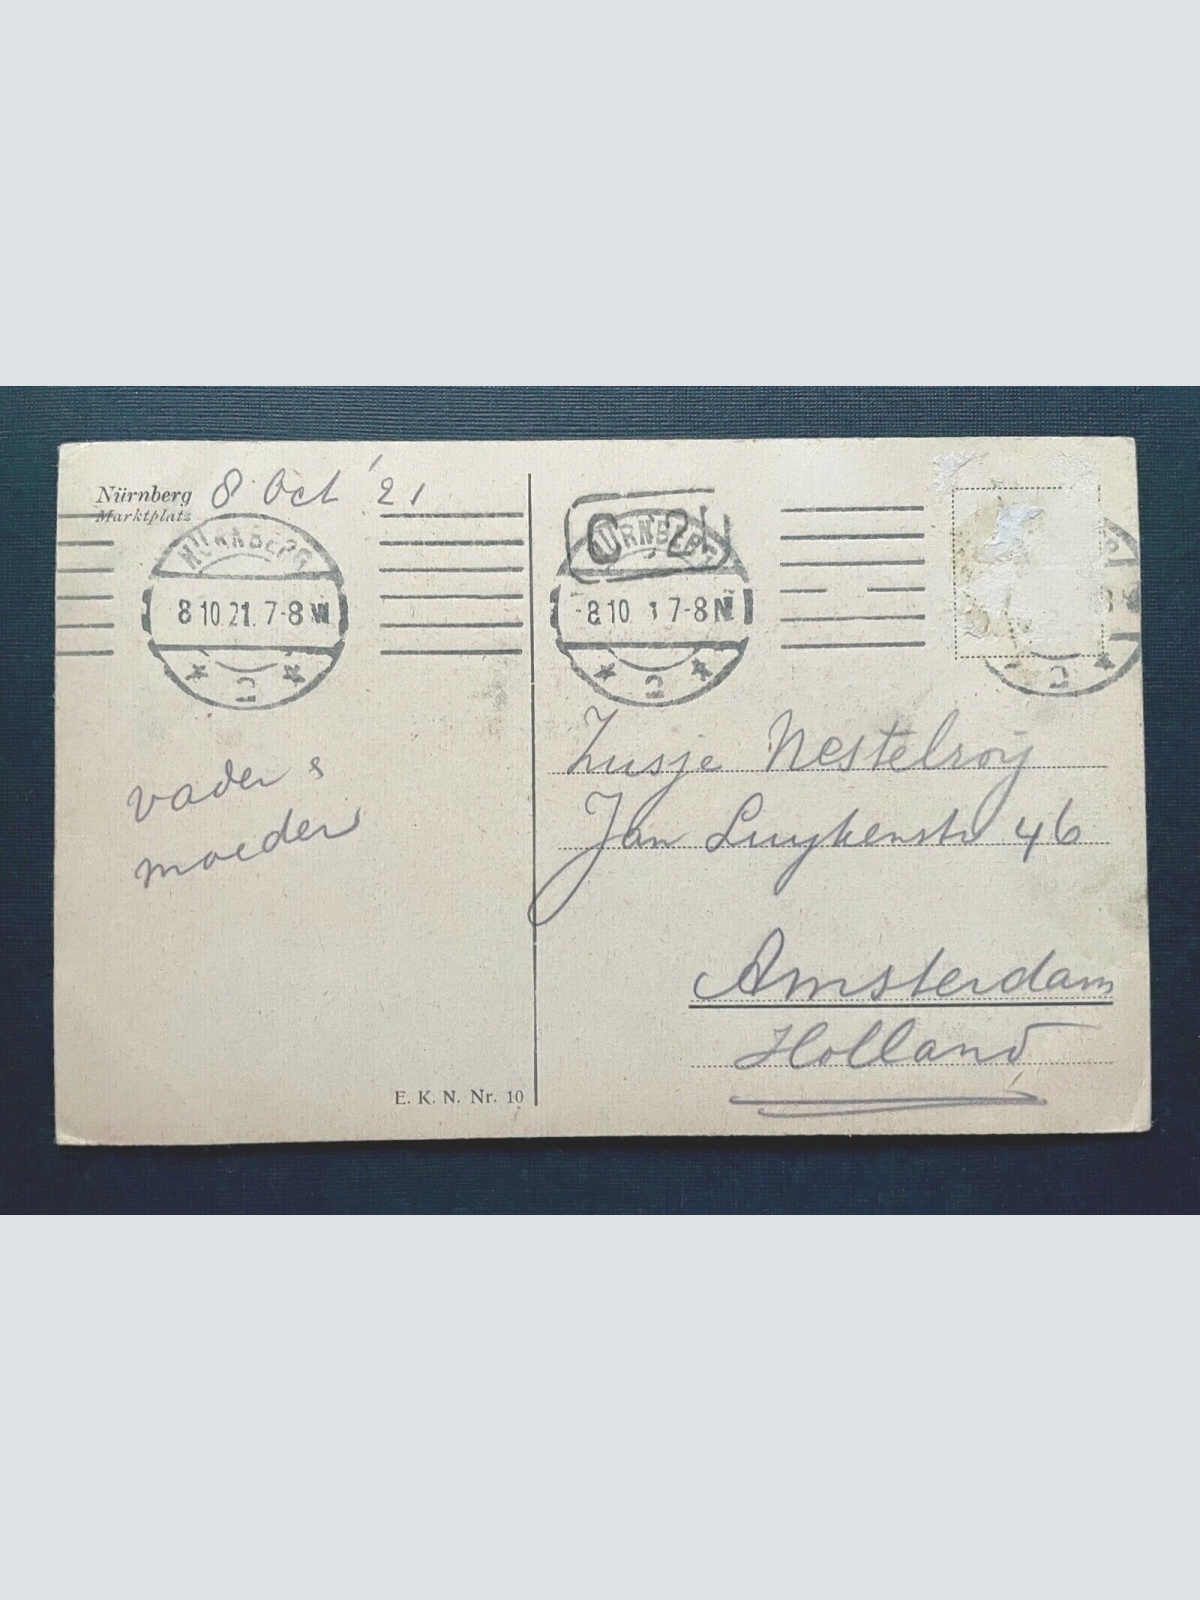 Nürnberg 8 Oct '21
Marktplatz
NÜRNBERG
8 10.21. 7-8 N
2
NÜRNBERG
-8.10. 1 7-8 N
2
2
vader &
moeder
Zusje Nestelroij
Jan Luykenstr 46
Amsterdam
Holland
E. K. N. Nr. 10